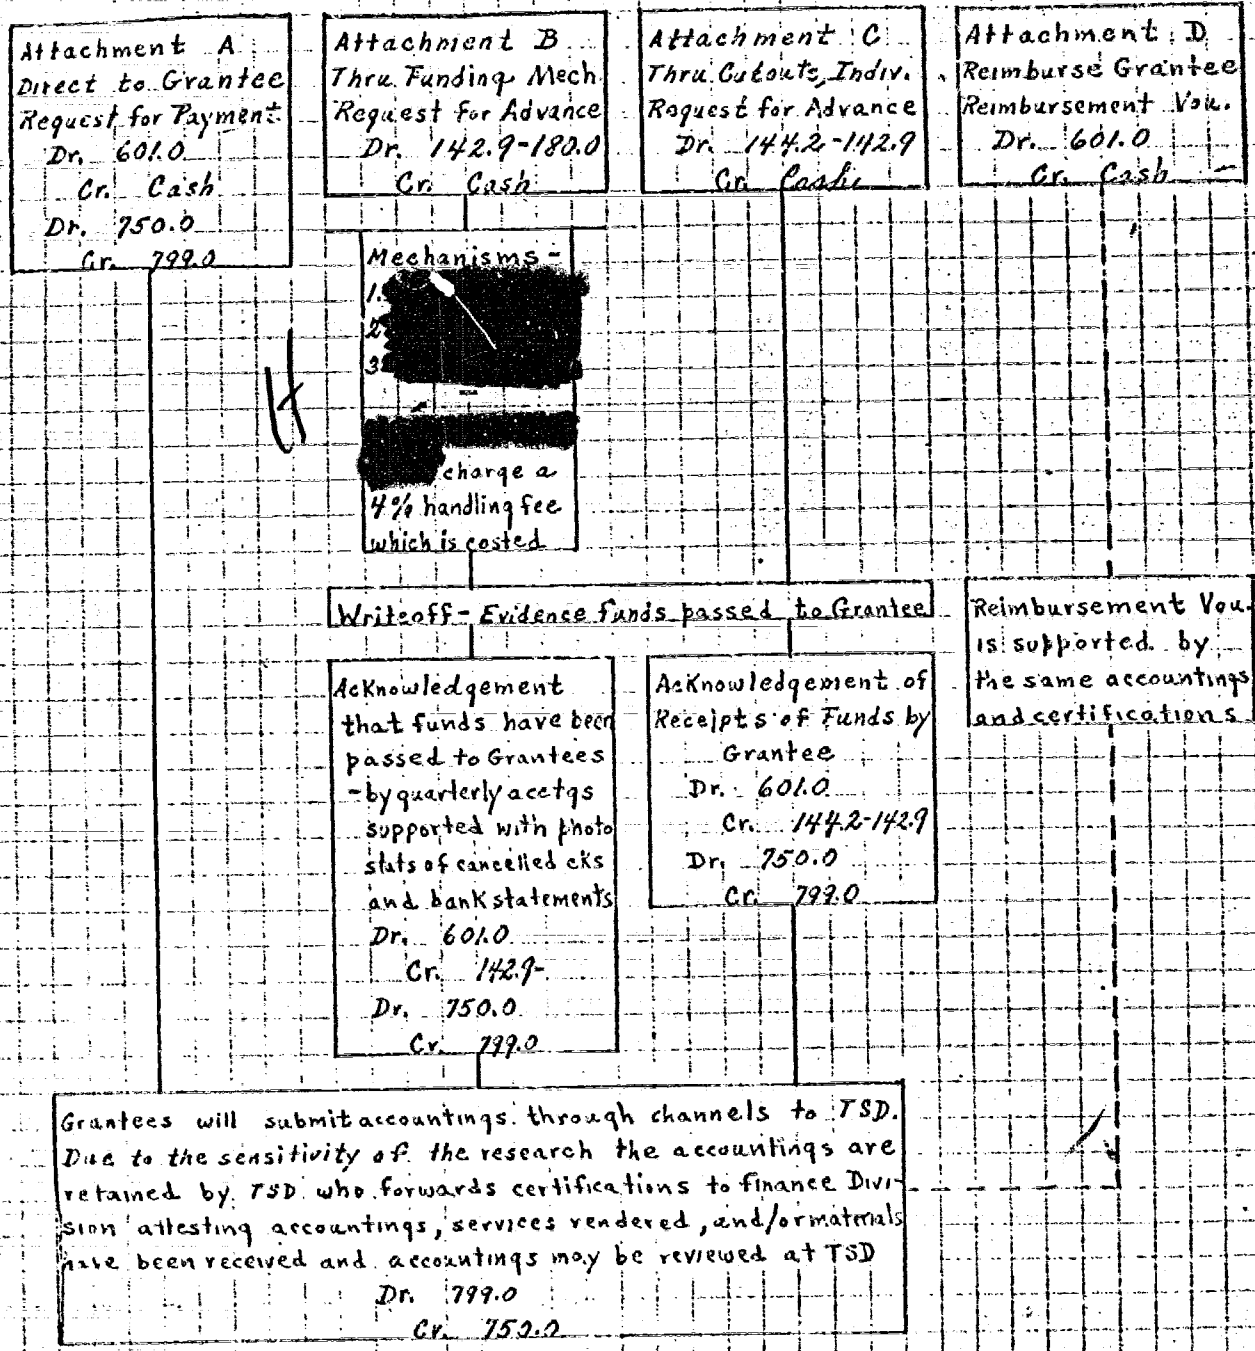 Attachment A
Direct to Grantee
Request for Payment
Dr. 601.0
Cr. Cash
Dr. 750.0
Cr. 799.0
Attachment B
Thru Funding Mech
Request for Advance
Dr. 142.9-180.0
Cr. Cash
Attachment C
Thru Cutouts, Indiv.
Request for Advance
Dr. 144.2-142.9
Cr. Cash
Attachment D
Reimburse Grantee
Reimbursement Vou.
Dr. 601.0
Cr. Cash
Mechanisms-
1.
2
3
charge a
4% handling fee
which is costed
H
Writeoff- Evidence funds passed to Grantee
Acknowledgement
that funds have been
passed to Grantees
-by quarterly acctgs
supported with photo
stats of cancelled cks
and bank statements
Dr. 601.0
Cr. 142.9-
Dr. 750.0
Cr. 799.0
Acknowledgement of
Receipts of Funds by
Grantee
Dr. 601.0
Cr. 144.2-142.9
Dr. 750.0
Cr. 799.0
Reimbursement Vou.
is supported by
the same accountings
and certifications
Grantees will submit accountings through channels to TSD.
Due to the sensitivity of the research the accountings are
retained by TSD who forwards certifications to finance Divi-
sion attesting accountings, services rendered, and/or materials
have been received and accountings may be reviewed at TSD
Dr. 799.0
Cr. 750.0